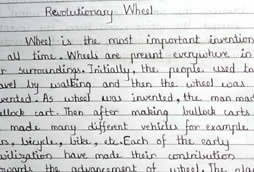 Revolutionary Wheel
Wheel is the most important invention
all time. Wheels are present everywhere in
r surroundings. Initially, the people used to
avel by walking and then the wheel was
vented. As wheel was invented, the man mad
ullock cart. Then after making bullock carts
made many different vehicles for example
s, bicycle, bike, etc. Each of the early
ivilization have made their contribution
owards the advancement of wheel. The